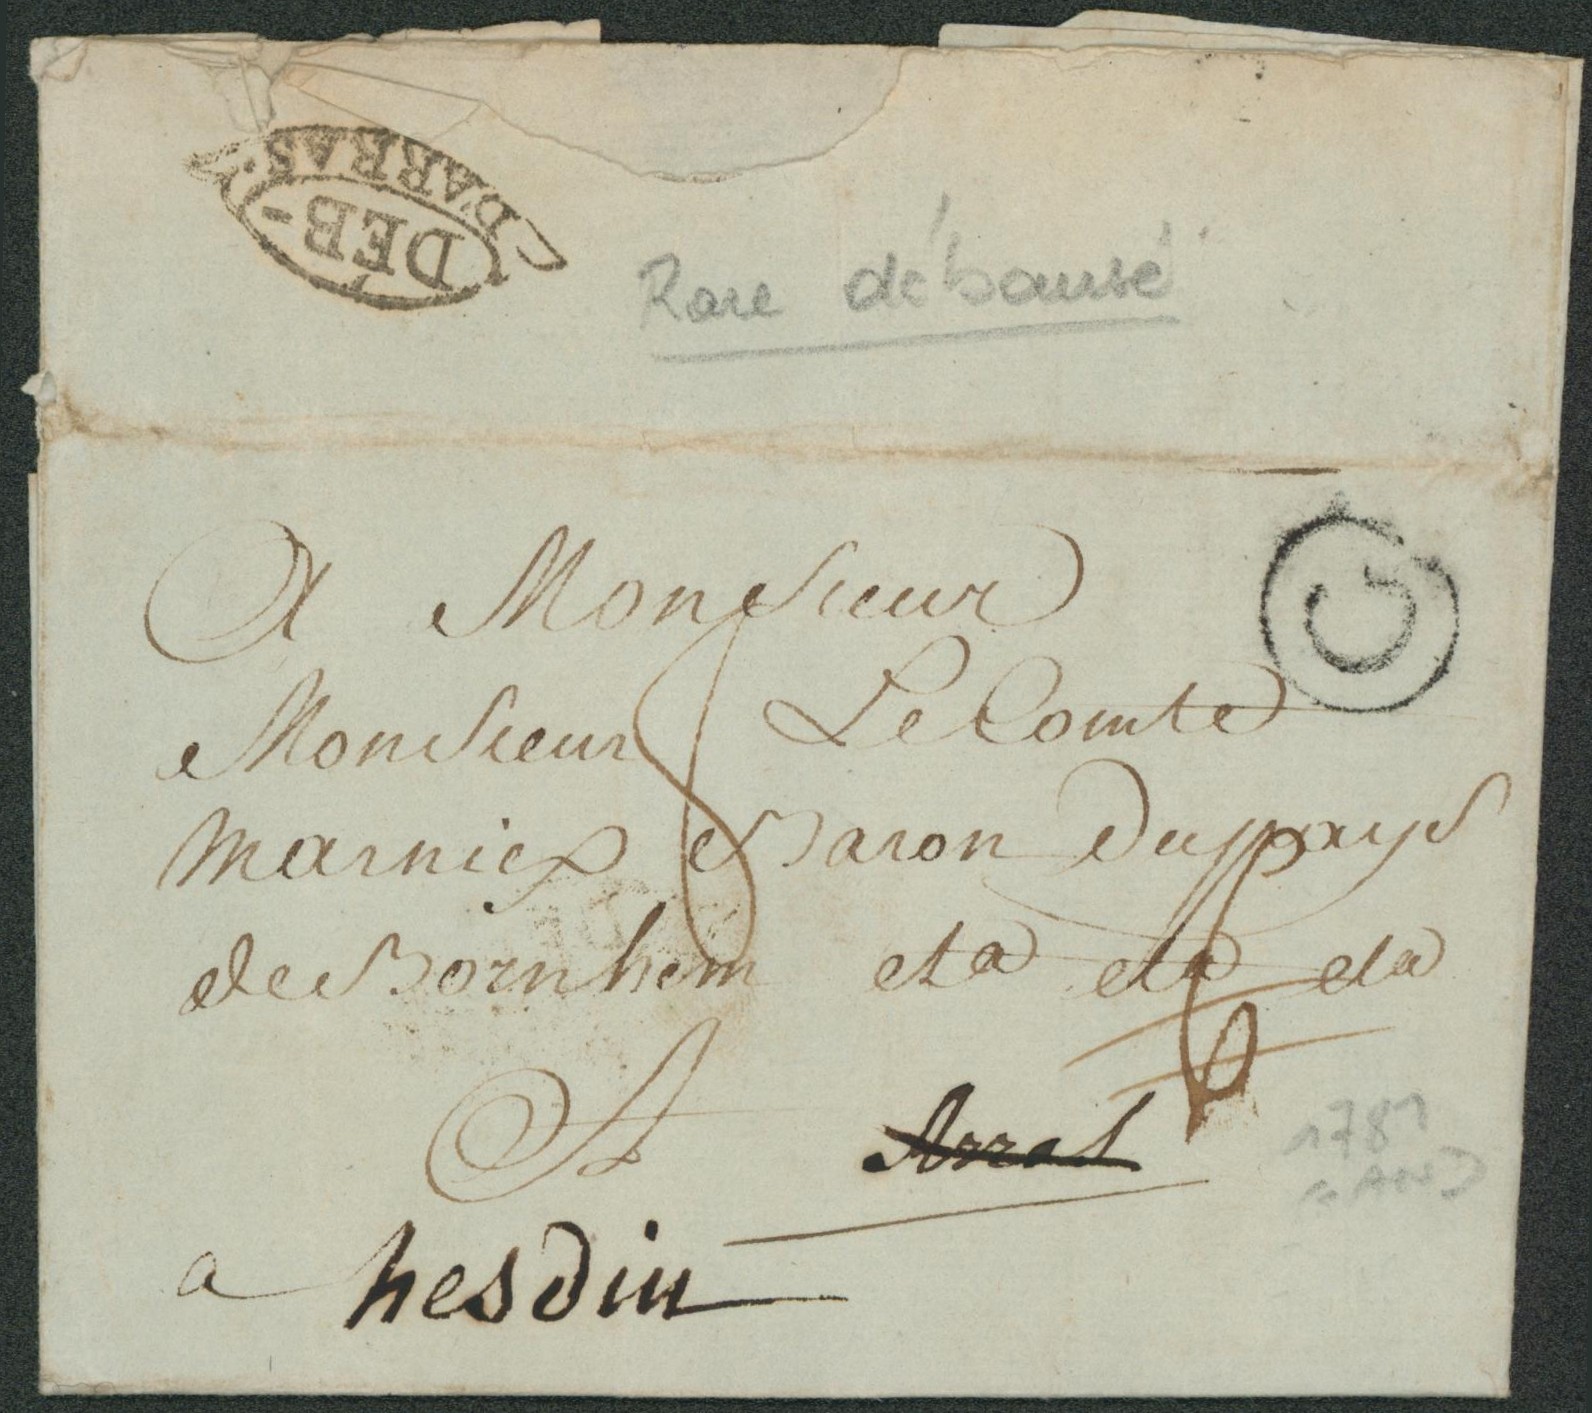 DÉB-
D'ARRAS.
Rare déboursé
G
A Monsieur
Monsieur Le Comte
Marnix Baron Du pays
de Bornhem eta eta eta
A Arras
a hesdin
8
6
1781
GAND